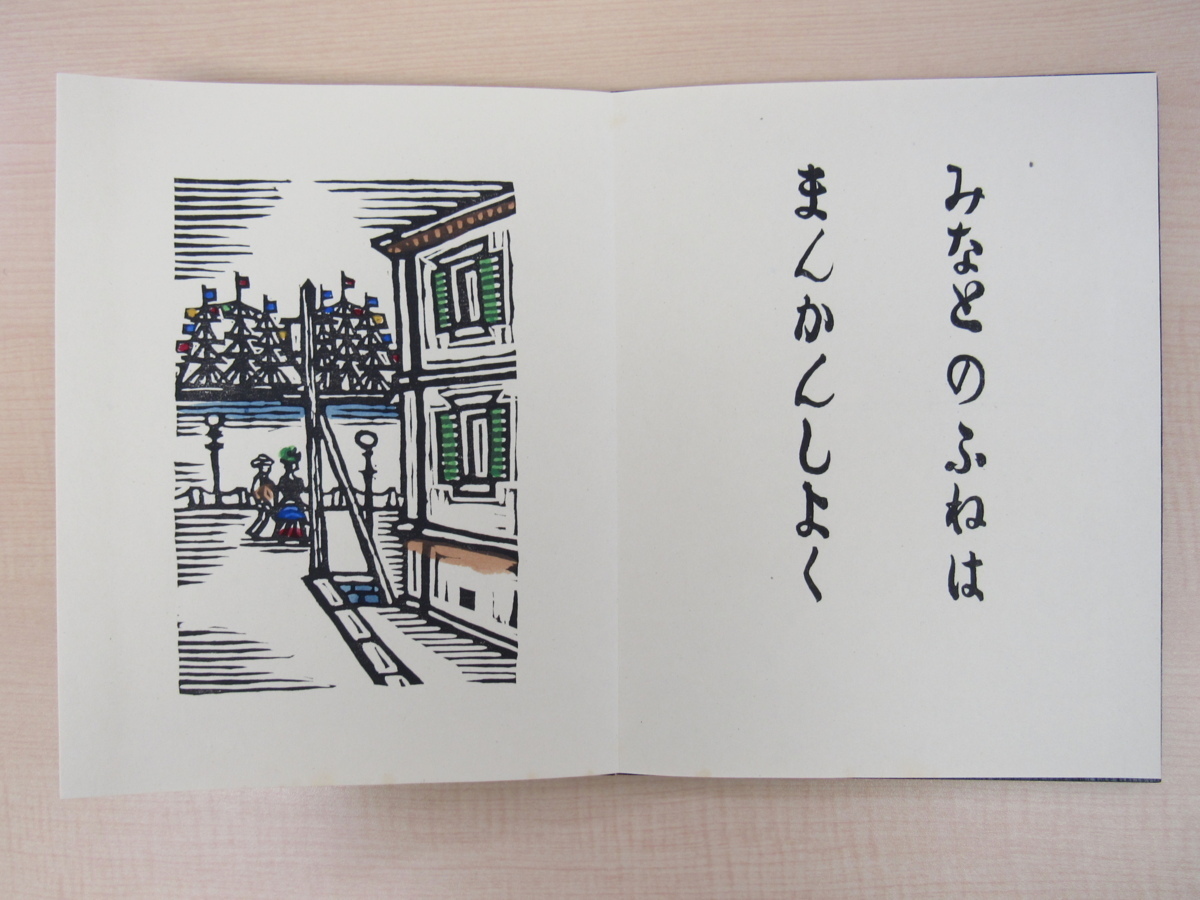 みなとのふねは
まんかんしよく